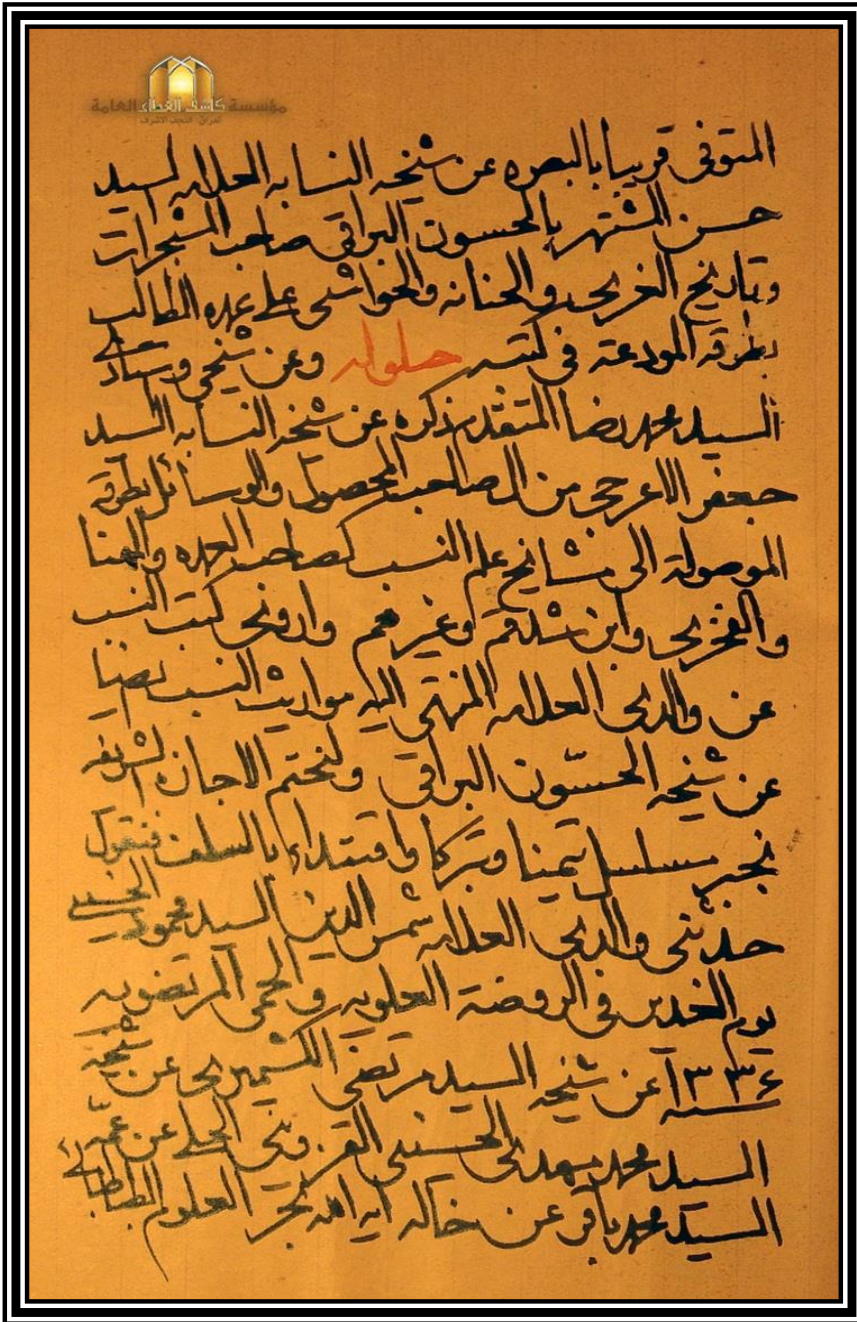 مؤسسة كاشف الغطاء العامة
العراق - النجف الاشرف
المتوفى قريبا بالبصره عن شيخه النسابه العلامه السيد
حسن الشتهر بالحسون البراقى صاحب المشجرات
وتاريخ الغرى والحنانه والحواشى على عمدة الطالب
بطرقه المودعة فى كتبه وعن شيخى
السيد محمد رضا المتقدم ذكره عن شيخه النسابه السيد
جعفر الاعرجى من ال صاحب المحصول والوسائل بطرقه
الموصولة الى مشايخ علم النسب كصاحب العمده والمهنا
والفخرى وابن شدقم وغيرهم واروى كتب النسب
عن والدى العلامه المنتهى اليه مواريث النسب ايضا
عن شيخه الحسّون البراقى ولنختم الاجازه الشريفه
بخبر مسلسل تيمنا وتبركا واقتداء بالسلف فنقول
حدثنى والدى العلامه شمس الدين السيد محمود الحسينى
يوم الغدير فى الروضة العلويه والحمى المرتضويه
سنه ١٣٣٤ عن شيخه السيد مرتضى الكشميرى عن شيخه
السيد محمد مهدى الحسينى القزوينى الحلى عن عمّه
السيد محمد باقر عن خاله اية الله بحر العلوم الطباطبائى